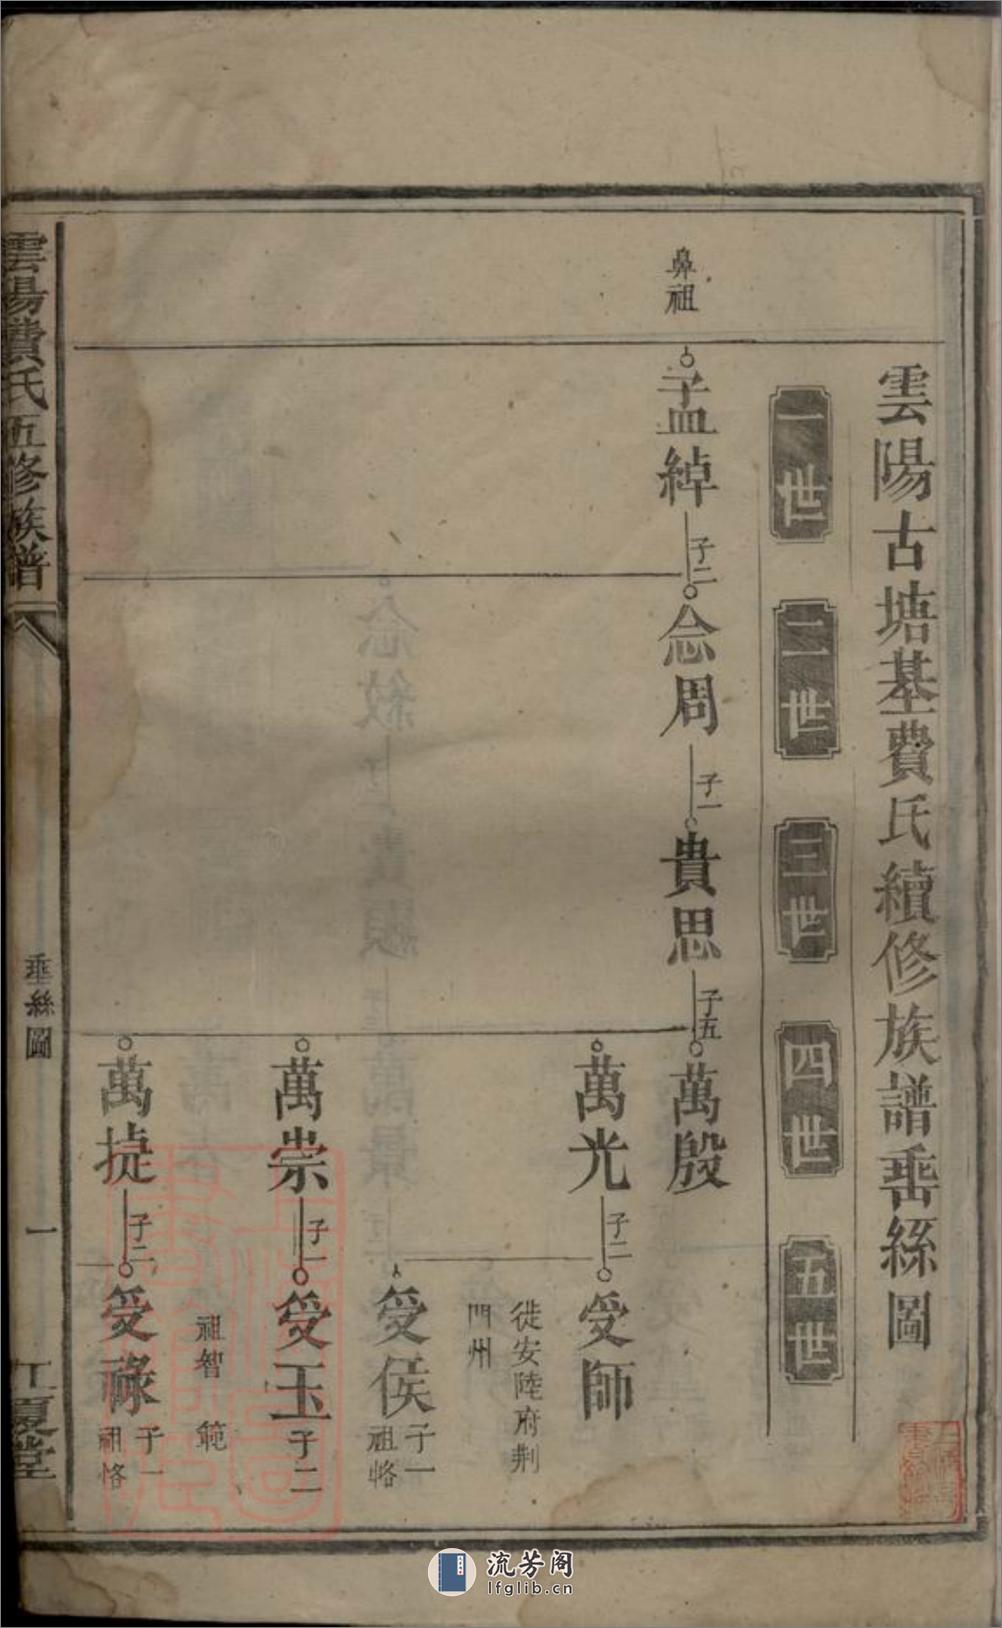 雲陽古塘基費氏續修族譜垂絲圖
一世
二世
三世
四世
五世
鼻祖
孟綽
子二
念周
子一
貴思
子五
萬殷
萬光
子二
受師
徙安陸府荆
門州
受侯
子一
祖恪
萬崇
子一
受玉
子二
祖智 範
萬㨗
子二
受祿
子一
祖恪
雲陽費氏五修族譜
垂絲圖
一
江夏堂
流芳阁
lfglib.cn